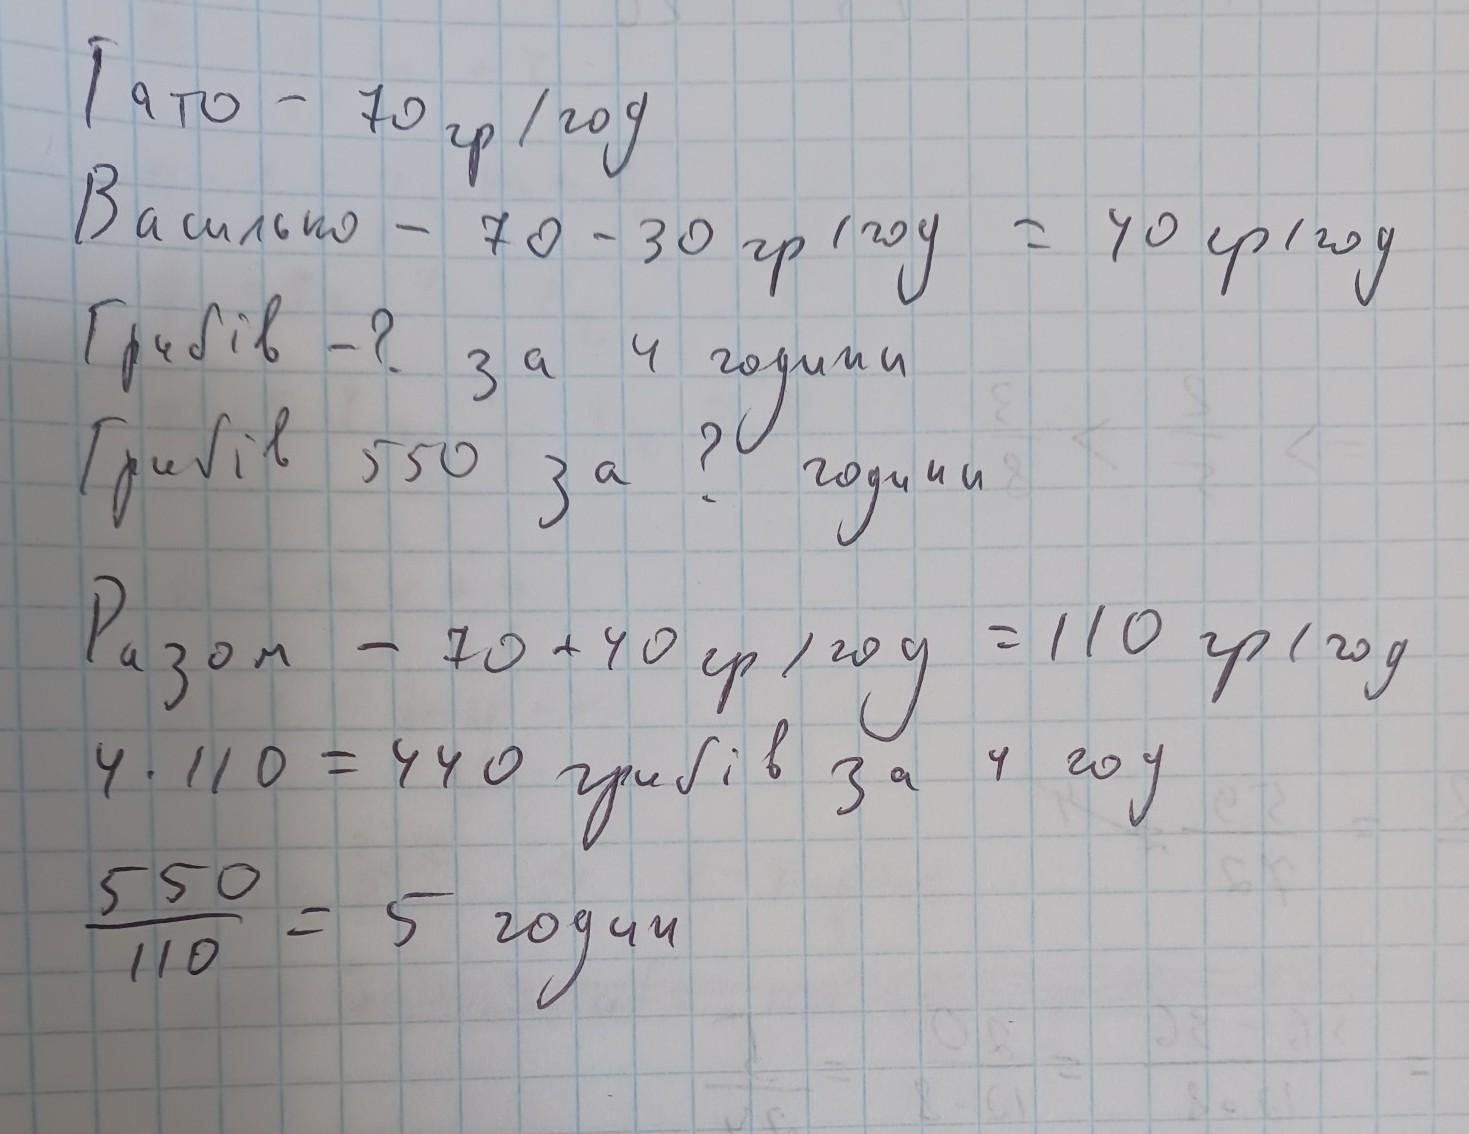 Тато - 70 гр/год
Василько - 70 - 30 гр/год = 40 гр/год
Грибів -? за 4 години
Грибів 550 за ? години
Разом - 70 + 40 гр/год = 110 гр/год
4 · 110 = 440 грибів за 4 год
550/110 = 5 годин